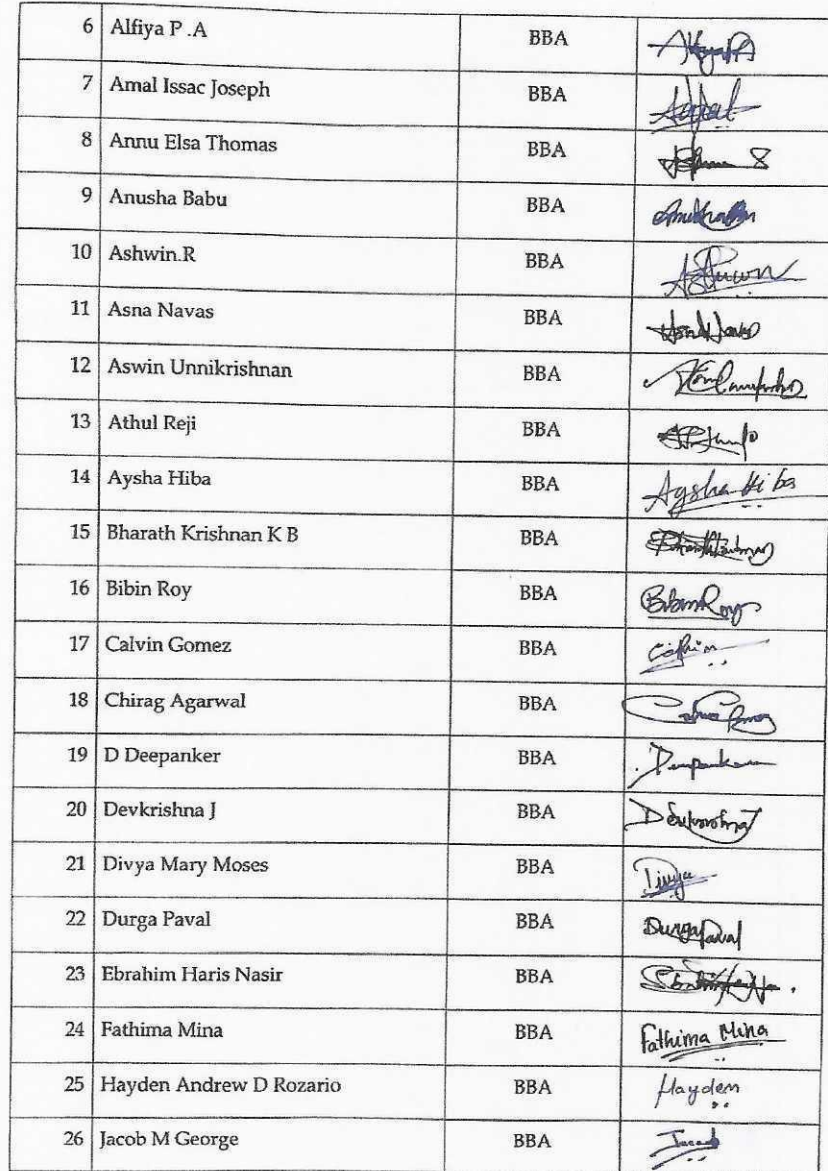 6 Alfiya P .A BBA
7 Amal Issac Joseph BBA
8 Annu Elsa Thomas BBA
9 Anusha Babu BBA
10 Ashwin.R BBA
11 Asna Navas BBA Asna Navas
12 Aswin Unnikrishnan BBA
13 Athul Reji BBA
14 Aysha Hiba BBA Aysha Hiba
15 Bharath Krishnan K B BBA
16 Bibin Roy BBA Bibin Roy
17 Calvin Gomez BBA
18 Chirag Agarwal BBA
19 D Deepanker BBA
20 Devkrishna J BBA
21 Divya Mary Moses BBA Divya
22 Durga Paval BBA Durga Paval
23 Ebrahim Haris Nasir BBA
24 Fathima Mina BBA Fathima Mina
25 Hayden Andrew D Rozario BBA Hayden
26 Jacob M George BBA Jacob